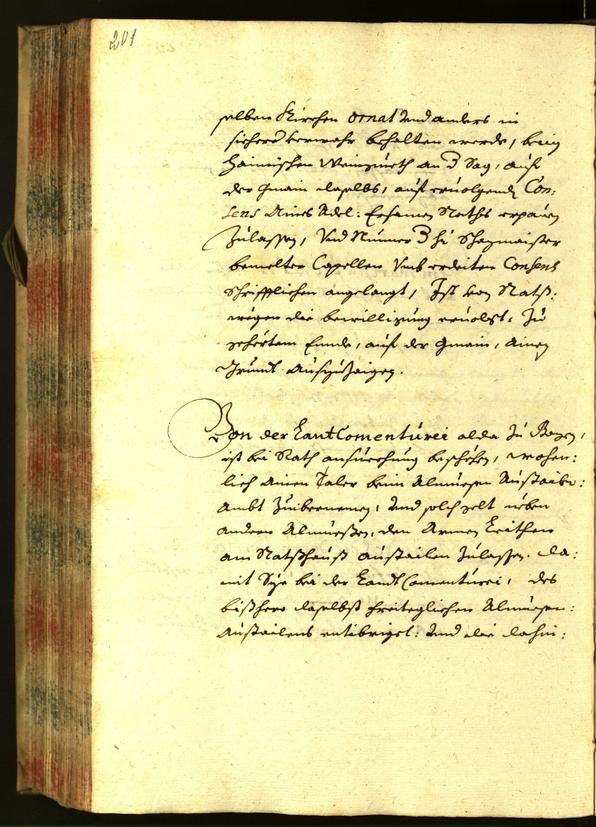 201
selben Kirchen ornat und anders in
sicherer verwahr behalten werde, beim
Hainischen Weinzürth an d Sag, auf
der gmain daselbs, auf ervolgend Con:
sens Aines Adel: Ersamen Raths erpauen
Zulassen, Und Nunmer die Herrn
bemelter Capellen umb erdeiten Consens
schrifftlichen angelangt, Ist von Rats:
wegen die bewilligung ervolgt, Zu
gehörtem Ennde, auf der Gmain, Ainen
Grundt Auszuzaigen.
Von der Landt Comenturei alda Zu Bozen,
ist bei Rath ansuechung beschehen, wochen:
lich Ainen Taler beim Almuesen Austail:
Ambt Zuibernemen, Und solch gelt neben
andern Almuesen, den Armen Leithen
am Rathshaus austailen Zulassen. da:
mit Sye bei der Landt Comenturei, des
bishero daselbst Almuesen:
Austailens entibrigt: Und die dahin: